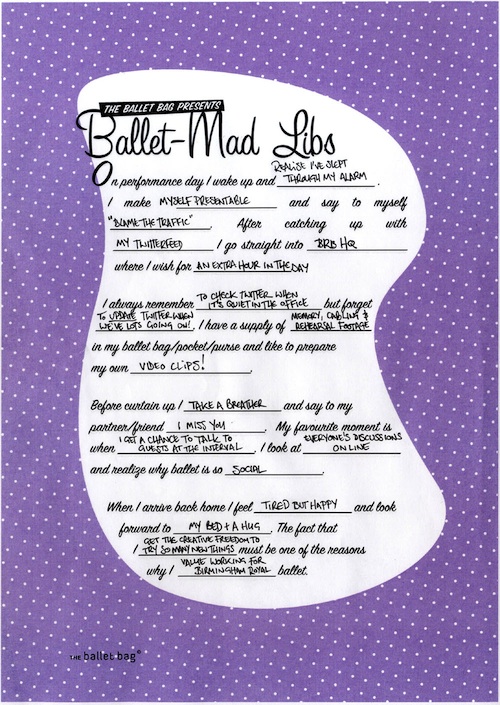 THE BALLET BAG PRESENTS
Ballet-Mad Libs
REALISE I'VE SLEPT
On performance day I wake up and THROUGH MY ALARM.
I make MYSELF PRESENTABLE and say to myself
"BLAME THE TRAFFIC". After catching up with
MY TWITTERFEED I go straight into BRB HQ
where I wish for AN EXTRA HOUR IN THE DAY
I always remember TO CHECK TWITTER WHEN IT'S QUIET IN THE OFFICE but forget
TO UPDATE TWITTER WHEN WE'VE LOTS GOING ON!. I have a supply of MEMORY, CABLING & REHEARSAL FOOTAGE
in my ballet bag/pocket/purse and like to prepare
my own VIDEO CLIPS!.
Before curtain up I TAKE A BREATHER and say to my
partner/friend I MISS YOU. My favourite moment is
when I GET A CHANCE TO TALK TO GUESTS AT THE INTERVAL. I look at EVERYONE'S DISCUSSIONS ONLINE
and realize why ballet is so SOCIAL.
When I arrive back home I feel TIRED BUT HAPPY and look
forward to MY BED + A HUG. The fact that
I GET THE CREATIVE FREEDOM TO TRY SO MANY NEW THINGS must be one of the reasons
why I VALUE WORKING FOR BIRMINGHAM ROYAL ballet.
THE ballet bag©